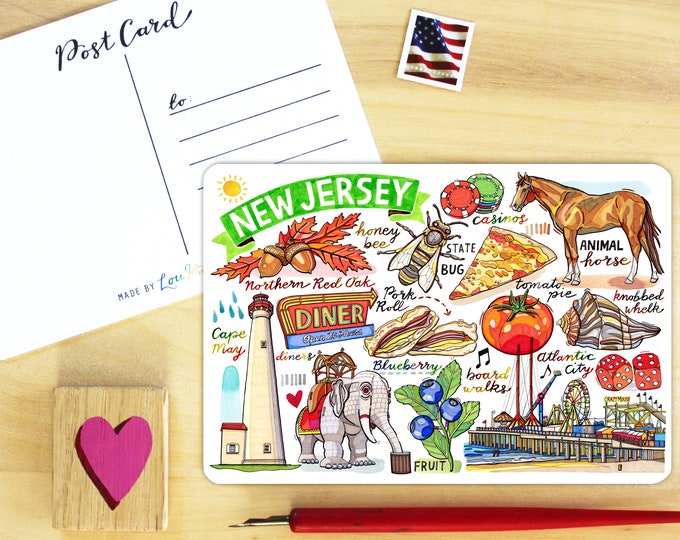 Post Card
to:
MADE BY Lou
NEW JERSEY
casinos
honey
bee
STATE
BUG
ANIMAL
horse
Northern Red Oak
tomato
pie
knobbed
whelk
Pork
Roll
DINER
Open 24 Hours
Cape
May
diners
Blueberry
board
walks
atlantic
City
CRAZY MOUSE
FRUIT